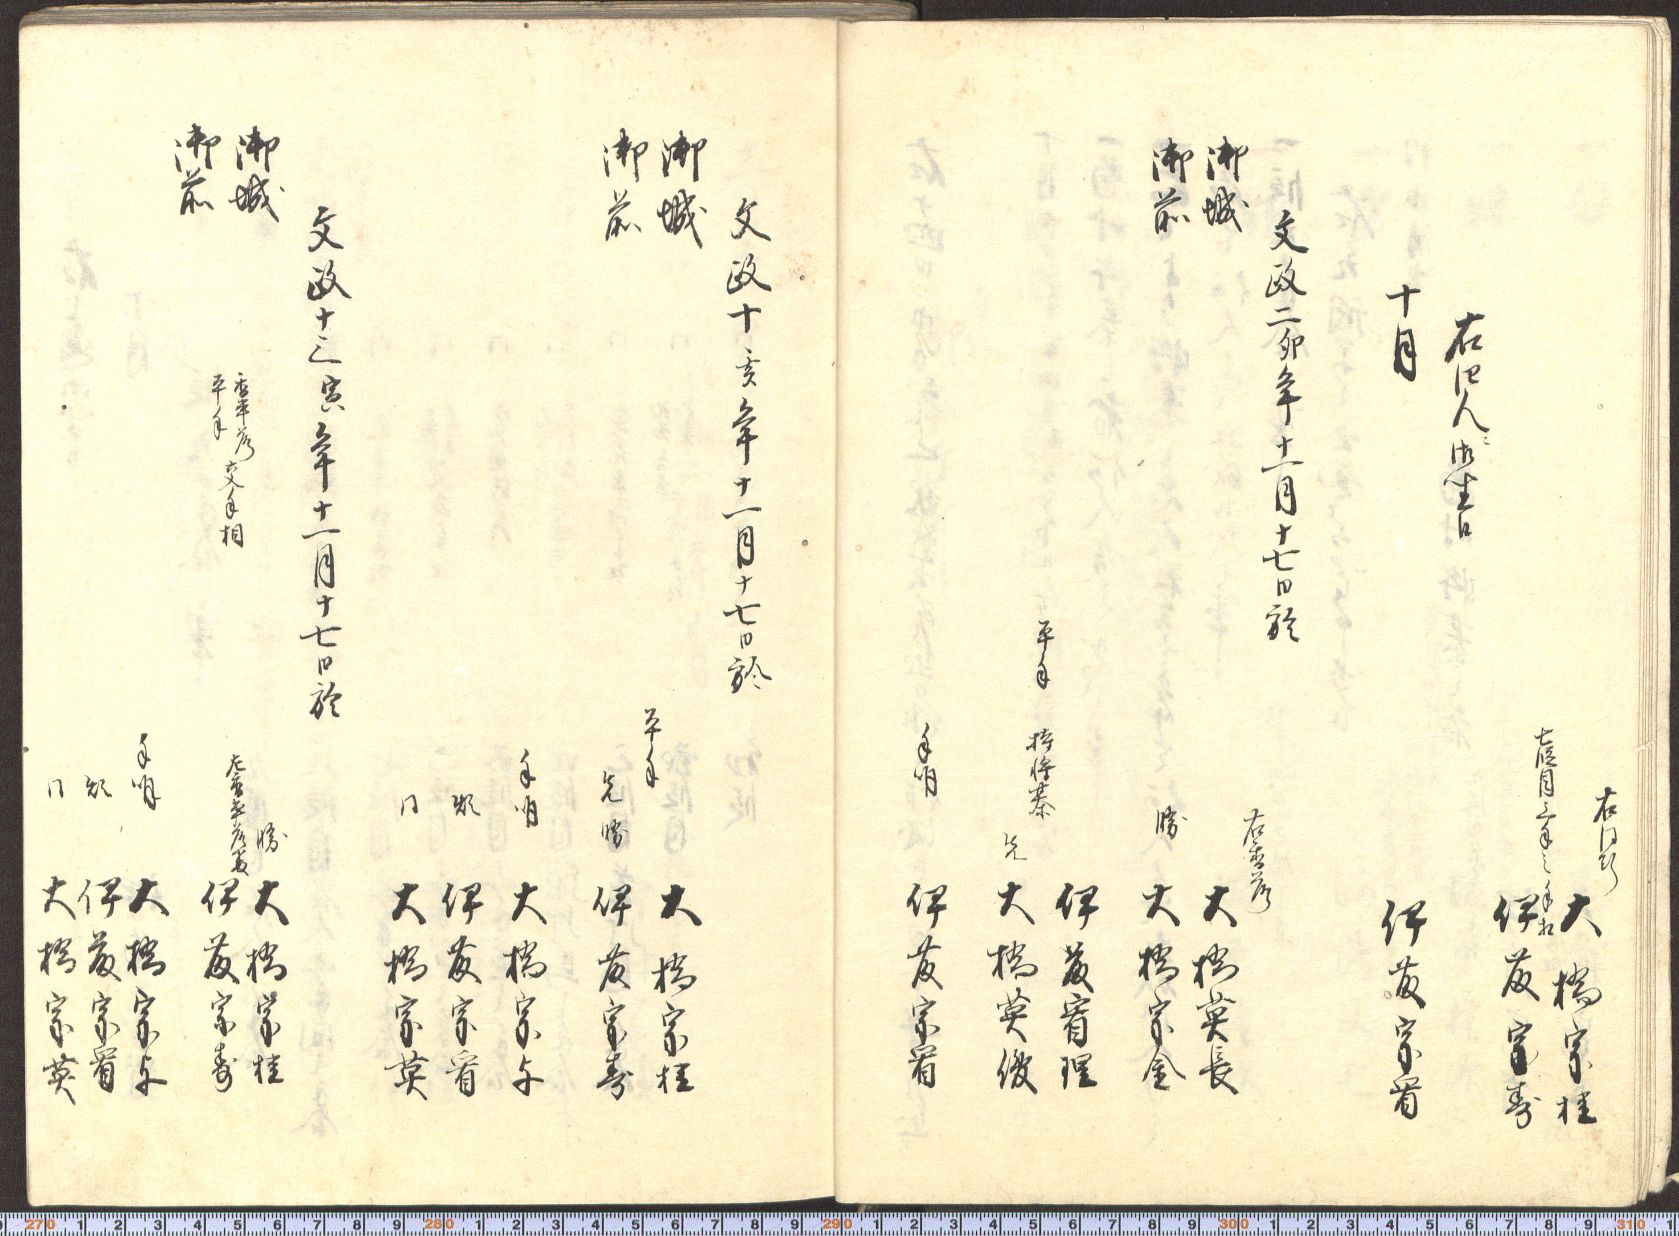 右同断
大橋宗桂
伊藤宗寿
伊藤宗看
右四人
十月
文政二卯年十一月十七日於
御城
御前
右香落
大橋英長
勝
大橋宗金
伊藤看理
平手
持将棊
先
大橋英俊
手明
伊藤宗看
文政十亥年十一月十七日於
御城
御前
大橋宗桂
平手
先勝
伊藤宗寿
手明
大橋宗与
煩
伊藤宗看
同
大橋宗英
文政十三寅年十一月十七日於
御城
御前
香車落
平手
交手相
勝
大橋宗桂
左香車落番
伊藤宗寿
手明
大橋宗与
煩
伊藤宗看
同
大橋宗英
270 1 2 3 4 5 6 7 8 9 280 1 2 3 4 5 6 7 8 9 290 1 2 3 4 5 6 7 8 9 300 1 2 3 4 5 6 7 8 9 310 1